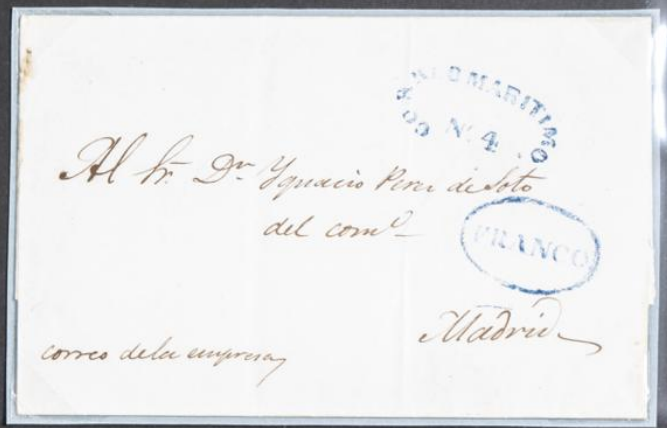 CORREO MARITIMO
Nº 4
Al Sr. Dn Ygnacio Perez de Soto
del como
FRANCO
Madrid
correo de la empresa